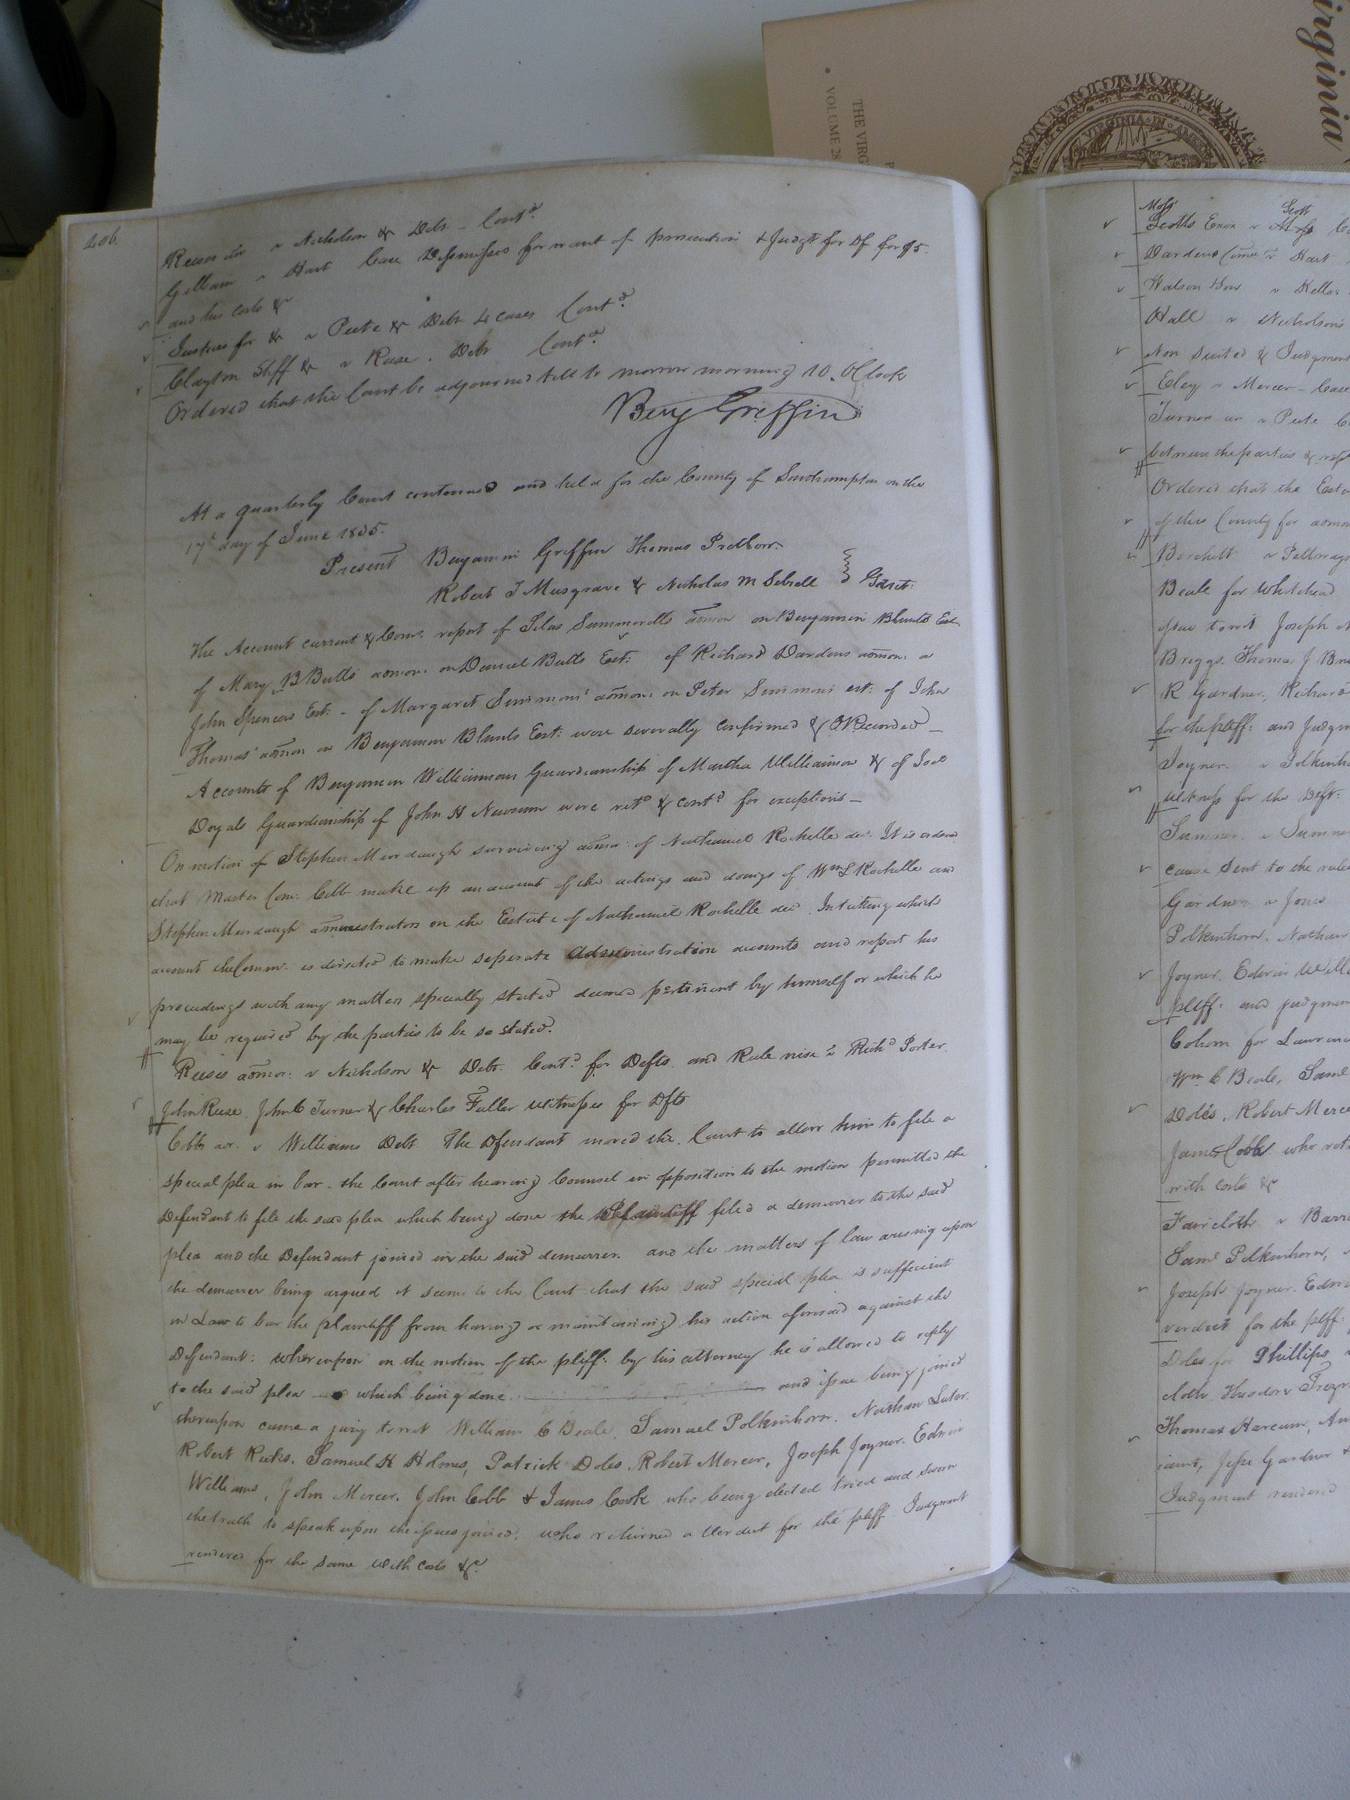 406.
Reeses admr v Nicholson & Debt - Contd
Gilliam v Hart Case Dismissed for want of prosecution & Judgt for Df for $5.
and his costs &c
Justices for &c v Peete &c Debt 4 cases Contd
Clayton Shff &c v Reese. Debt Contd
Ordered that the Court be adjourned till to morrow morning 10. OClock
Benj Griffin
At a quarterly Court continued and held for the County of Southampton on the
17th day of June 1835.
Present Benjamin Griffin Thomas Pretlow.
Robert T Musgrave & Nicholas M Sebrell Gent:
The Account current & Comr. report of Silas Summerells admon on Benjamin Blunts Est
of Mary B Butts admon: on Daniel Butts Est: of Richard Dardens admon: on
John Spencers Est: - of Margaret Simmons' admon: on Peter Simmons est: of John
Thomas' admon on Benjamin Blunts Est: were severally confirmed & ORecorded -
Accounts of Benjamin Williamson Guardianship of Martha Williamson & of Joel
Doyals Guardianship of John H Newsum were retd & contd for exceptions -
On motion of Stephen Murdaugh surviving admor: of Nathaniel Rochelle dec: It is ordered
that Master Com: Cobb make up an account of the actings and doings of Wm L Rochelle and
Stephen Murdaugh administrators on the Estate of Nathaniel Rochelle dec. In stating which
account the Comm: is directed to make seperate administration accounts and report his
proceedings with any matters specially stated deemed pertinent by himself or which he
may be required by the parties to be so stated.
Reeses admor: v Nicholson & Debt. Contd for Defts. and Rule nisi vs Richd Porter.
John Reese, John C Turner & Charles Fuller witnesses for Dfts
Cobb v Williams Debt The Defendant moved the Court to allow him to file a
special plea in bar. the Court after hearing Counsel in opposition to the motion permitted the
Defendant to file the said plea which being done the Plaintiff filed a demurrer to the said
plea and the Defendant joined in the said demurrer. and the matters of law arising upon
the demurrer being argued it seems to the Court that the said special plea is sufficient
in Law to bar the plaintiff from having or maintaining his action aforesaid against the
Defendant: whereupon on the motion of the pltff: by his attorney he is allowed to reply
to the said plea which being done and issue being joined
thereupon came a jury towit William C Beale, Samuel Polkinhorn. Nathan Lister.
Robert Ricks. Samuel H Holmes, Patrick Doles. Robert Mercer, Joseph Joyner. Edwin
Williams, John Mercer, John Cobb & James Cook who being elected tried and sworn
the truth to speak upon the issues joined. who returned a Verdict for the pltff Judgment
rendered for the same with costs &c
irginia
THE VIRG
VOLUME 2
VIRGINIA IN
Moss Scott
Scotts Exor v
Darden v Hart
Watson v
Hall v Nicholson
Non suited & Judgment
Eley v Mercer - Case
Turner v Peete
between the parties &
Ordered that the
of this County for
Borchett v
Beale for Whitehead
issue towit Joseph
Briggs. Thomas J
R Gardner, Richard
for the pltff: and Judgm
Joyner v Polkinh
witness for the Deft:
Sumner v Sumne
cause sent to the rules
Gardner v Jones
Polkinhorn. Nathan
Joyner. Edwin Will
pltff: and judgmen
Cobun for Lawren
Wm C Beale, Saml
Doles, Robert Merce
James Cobb who
with costs &c
Faircloth v Barr
Saml Polkinhorn,
Joseph Joyner. Edw
verdict for the pltff:
Doles for Phillips
cloth Theodore
Thomas Harcum,
Jesse Gardner &
Judgment rendered